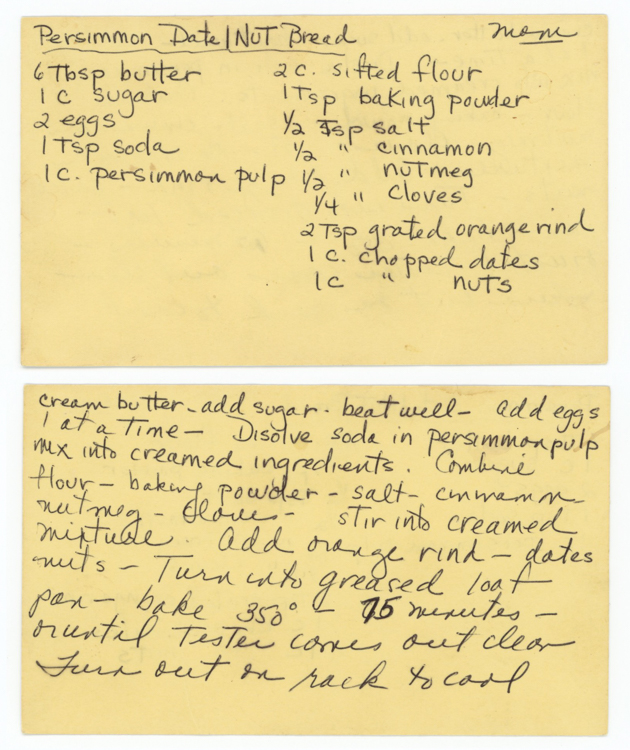 Persimmon Date/Nut Bread
Mom
6 Tbsp butter
1 c sugar
2 eggs
1 Tsp soda
1 c. persimmon pulp
2 c. sifted flour
1 Tsp baking powder
1/2 Tsp salt
1/2 " cinnamon
1/2 " nutmeg
1/4 " cloves
2 Tsp grated orange rind
1 c. chopped dates
1 c " nuts
cream butter - add sugar - beat well - add eggs
1 at a Time - Disolve soda in persimmon pulp
mix into creamed ingredients. Combine
flour - baking powder - salt - cinnamon
nutmeg - cloves - stir into creamed
mixture. Add orange rind - dates
nuts - Turn into greased loaf
pan - bake 350° - 75 minutes -
or until Tester comes out clear
Turn out on rack to cool